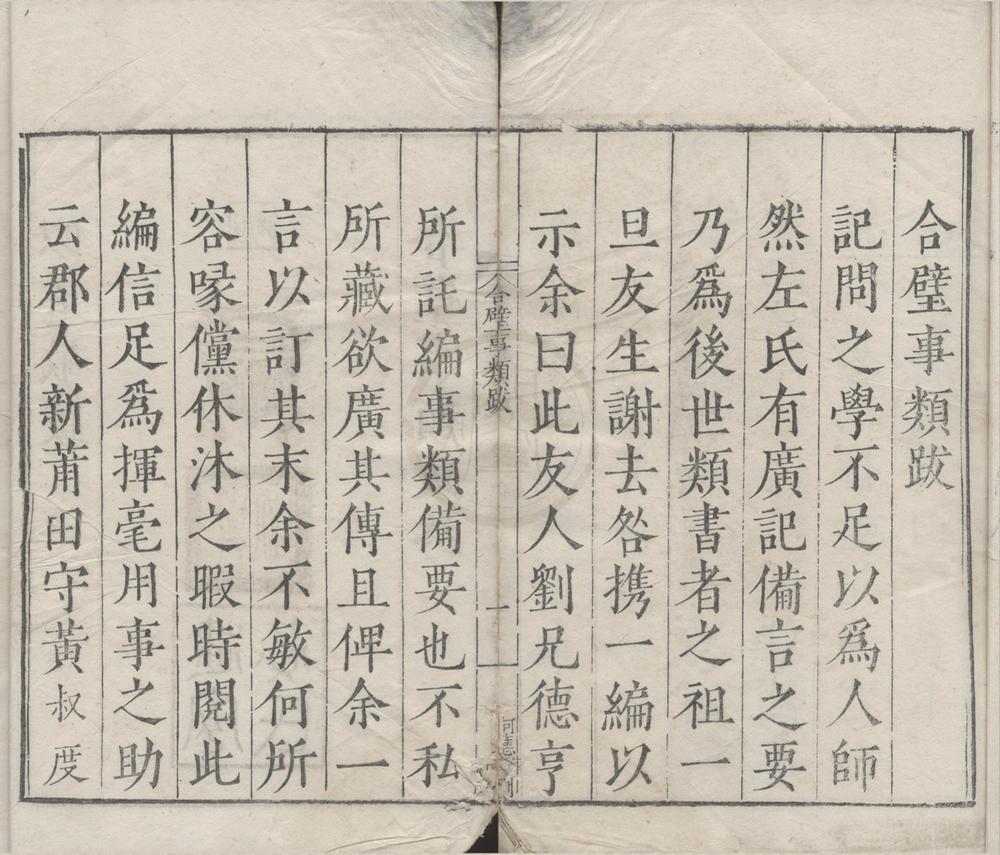 合璧事類跋
記問之學不足以爲人師
然左氏有廣記備言之要
乃爲後世類書者之祖一
旦友生謝去咎携一編以
示余曰此友人劉兄德亨
合璧事類跋
一
所託編事類備要也不私
所藏欲廣其傳且俾余一
言以訂其末余不敏何所
容喙儻休沐之暇時閱此
編信足爲揮毫用事之助
云郡人新莆田守黃叔度